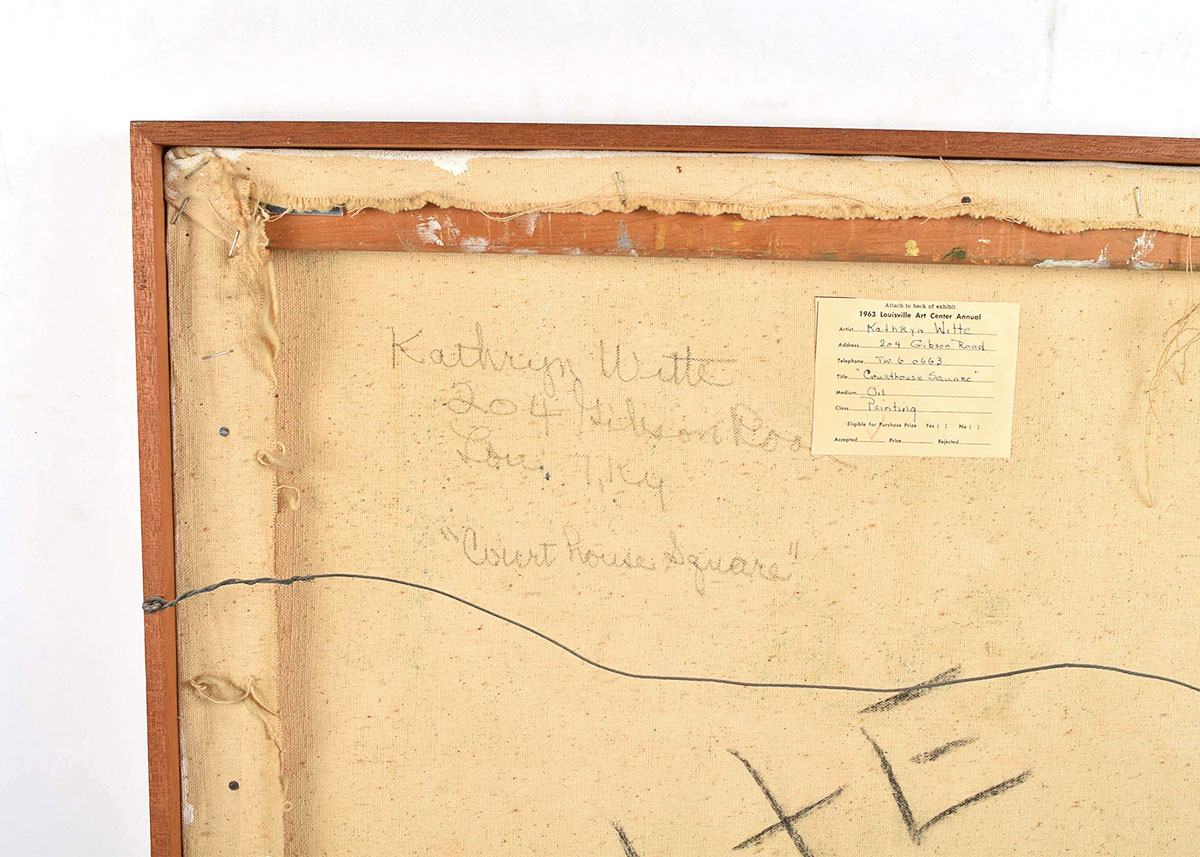 Kathryn Witte
204 Gibson Road
Lou. 7, Ky
"Court house Square"
Attach to back of exhibit
1963 Louisville Art Center Annual
Artist Kathryn Witte
Address 204 Gibson Road
Telephone TW 6 0663
Title "Courthouse Square"
Medium Oil
Class Painting
Eligible for Purchase Prize Yes ( ) No ( )
Accepted Price Rejected